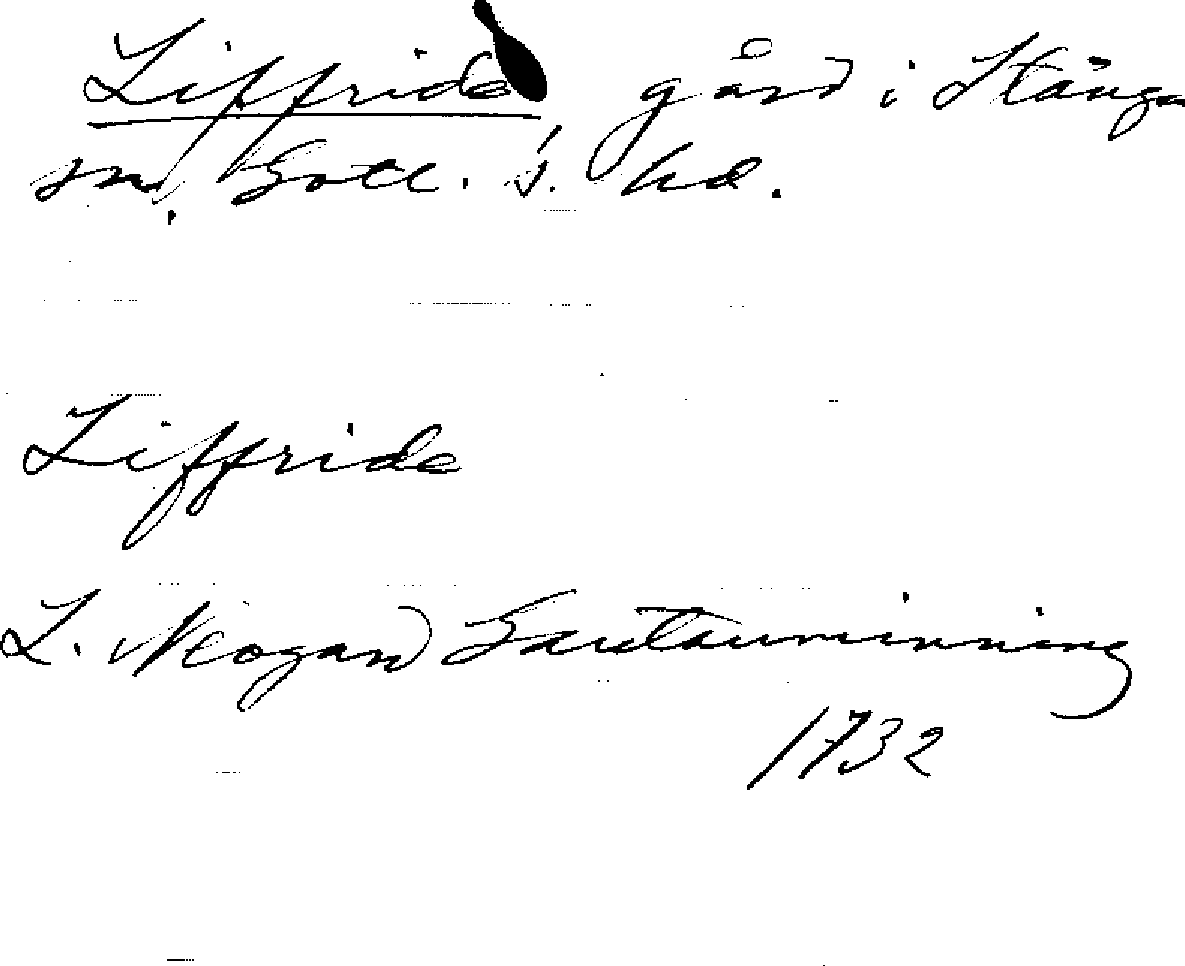 Liffride gård i Stånga
sn, Gotl. s. hd.
Liffride
L. Neogard Gautauminning
1732